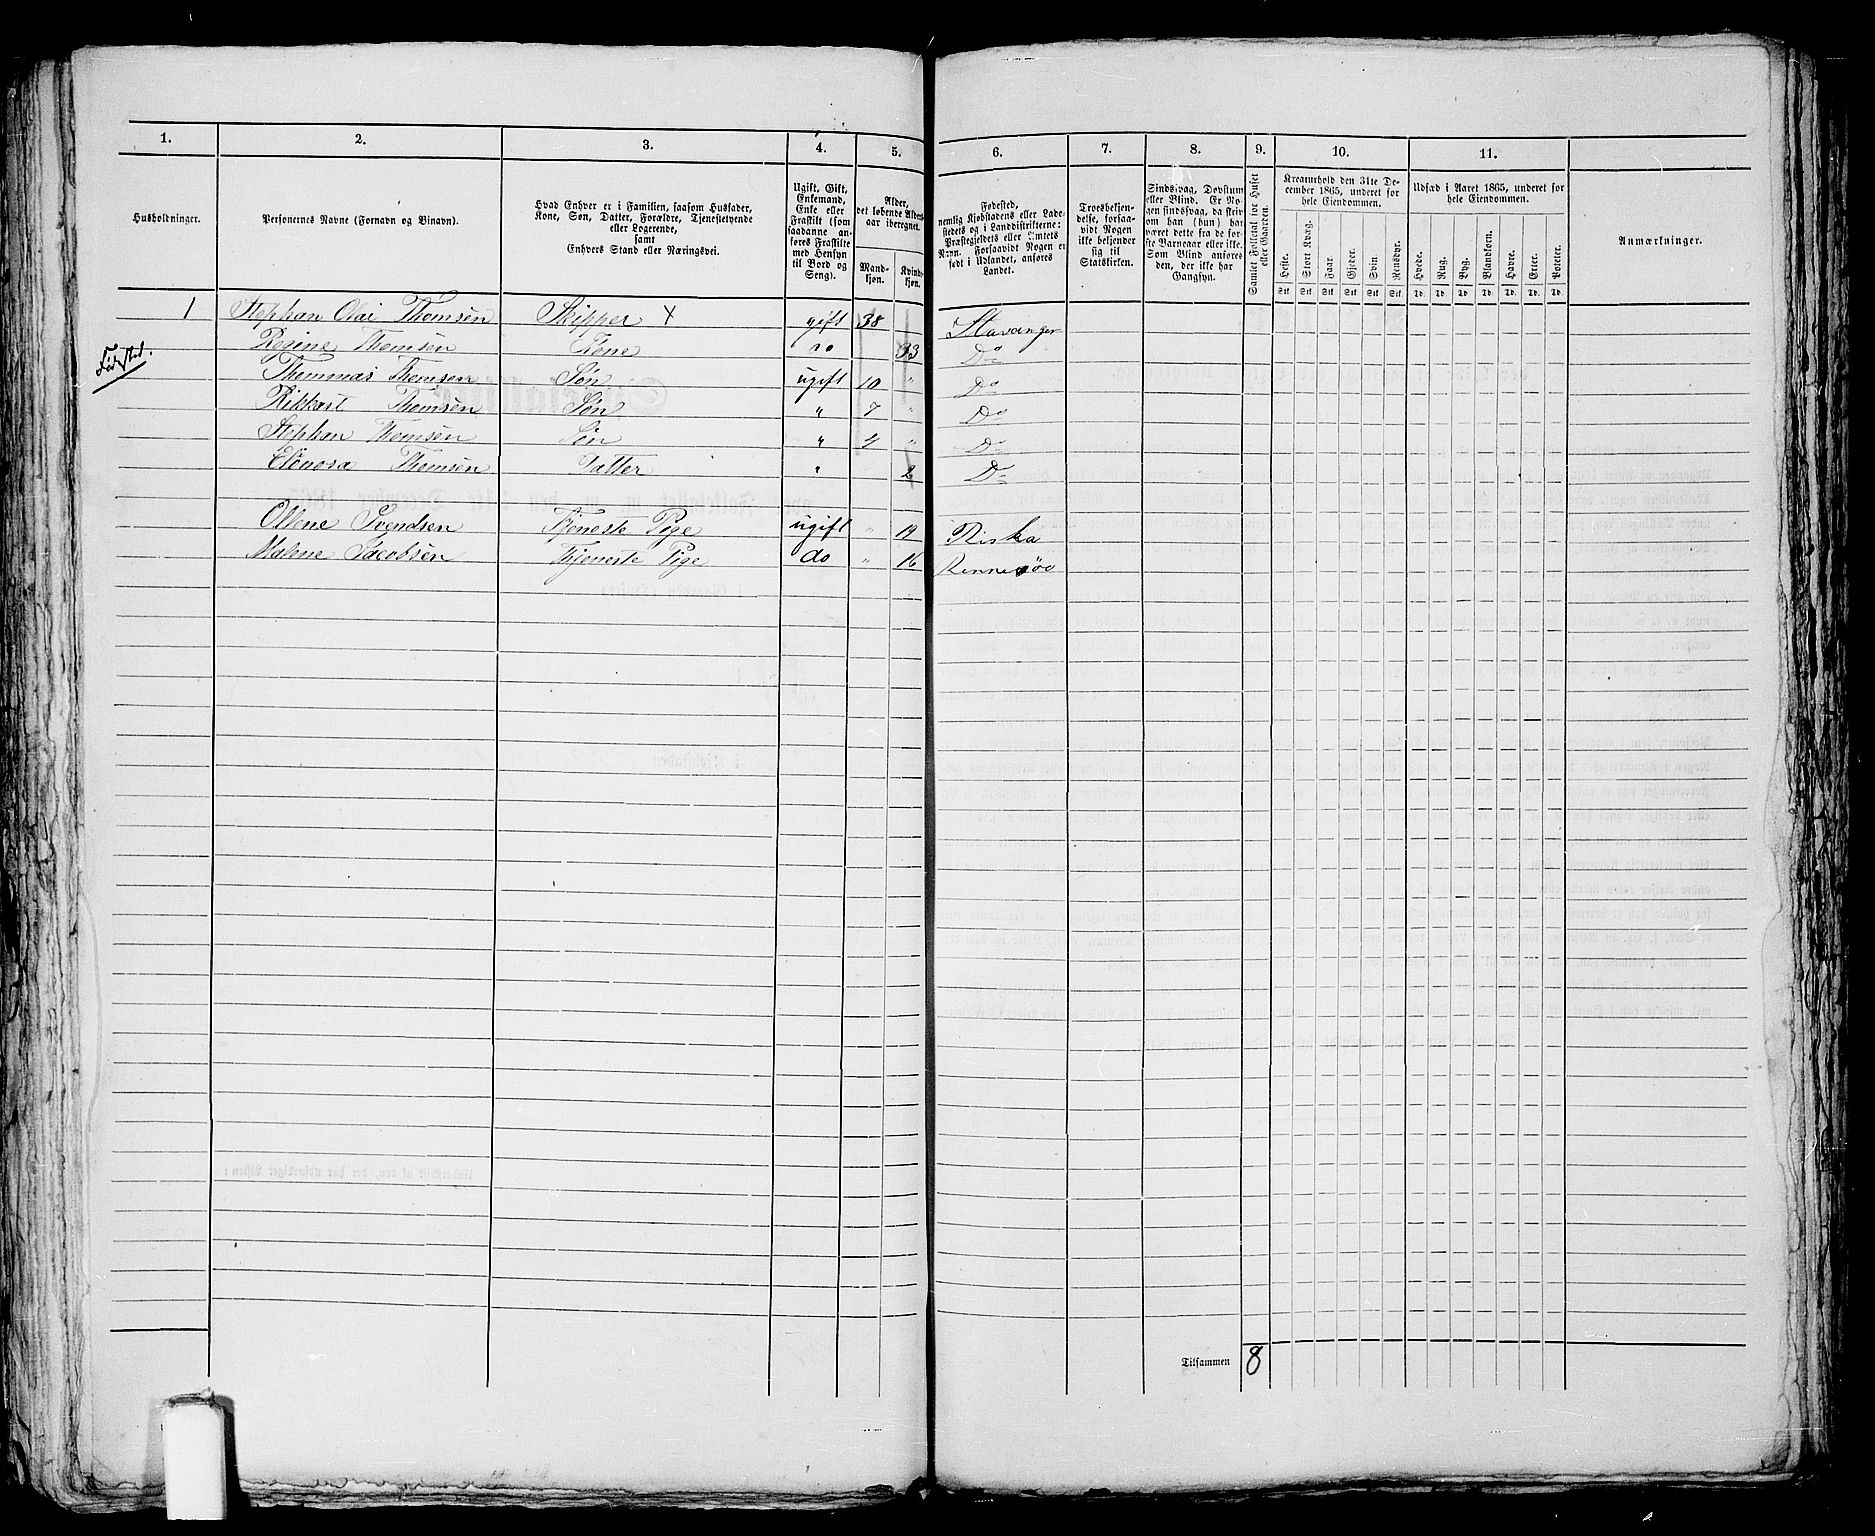 1. 2. 3. 4. 5. 6. 7. 8. 9. 10. 11.
Husholdninger.
Personernes Navne (Fornavn og Binavn).
Hvad Enhver er i Familien, saasom Husfader,
Kone, Søn, Datter, Forældre, Tjenestetyende
eller Logerende,
samt
Enhvers Stand eller Næringsvei.
Ugift, Gift,
Enkemand,
Enke eller
Fraskilt (som
saadanne an-
føres Fraskilte
med Hensyn
til Bord og
Seng).
Alder,
det løbende Alders-
aar iberegnet.
Mand-
kjøn.
Kvinde-
kjøn.
Fødested,
nemlig Kjøbstadens eller Lade-
stedets og i Landdistrikterne:
Præstegjeldets eller Amtets
Navn. Forsaavidt Nogen er
født i Udlandet, anføres
Landet.
Troesbekjen-
delse, forsaa-
vidt Nogen
ikke bekjender
sig til
Statskirken.
Sindssvag, Døvstum
eller Blind. Er No-
gen sindssvag, da skriv
om han (hun) har
været dette fra de før-
ste Barneaar eller ikke.
Som Blind anføres
den, der ikke har
Gangsyn.
Samlet Folketal for Huset
eller Gaarden.
Kreaturhold den 31te De-
cember 1865, underet for
hele Eiendommen.
Heste. Stort Kvæg. Faar. Gjeder. Svin. Rensdyr.
Stk. Stk. Stk. Stk. Stk. Stk.
Udsæd i Aaret 1865, underet for
hele Eiendommen.
Hvede. Rug. Byg. Blandkorn. Havre. Erter. Poteter.
Td. Td. Td. Td. Td. Td. Td.
Anmærkninger.
1 Stephan Olai Thomsen Skipper X gift 38 Stavanger
Regine Thomsen Kone do 33 Do
Thommas Thomsen Søn ugift 10 " Do
Rikkart Thomsen Søn " 7 " Do
Stephan Thomsen Søn " 4 " Do
Elenora Thomsen Datter " 2 Do
Ollene Svendsen Tjeneste Pige ugift " 19 Riska
Malene Jacobsen Thjeneste Pige do " 16 Rennesøe
Tilsammen 8